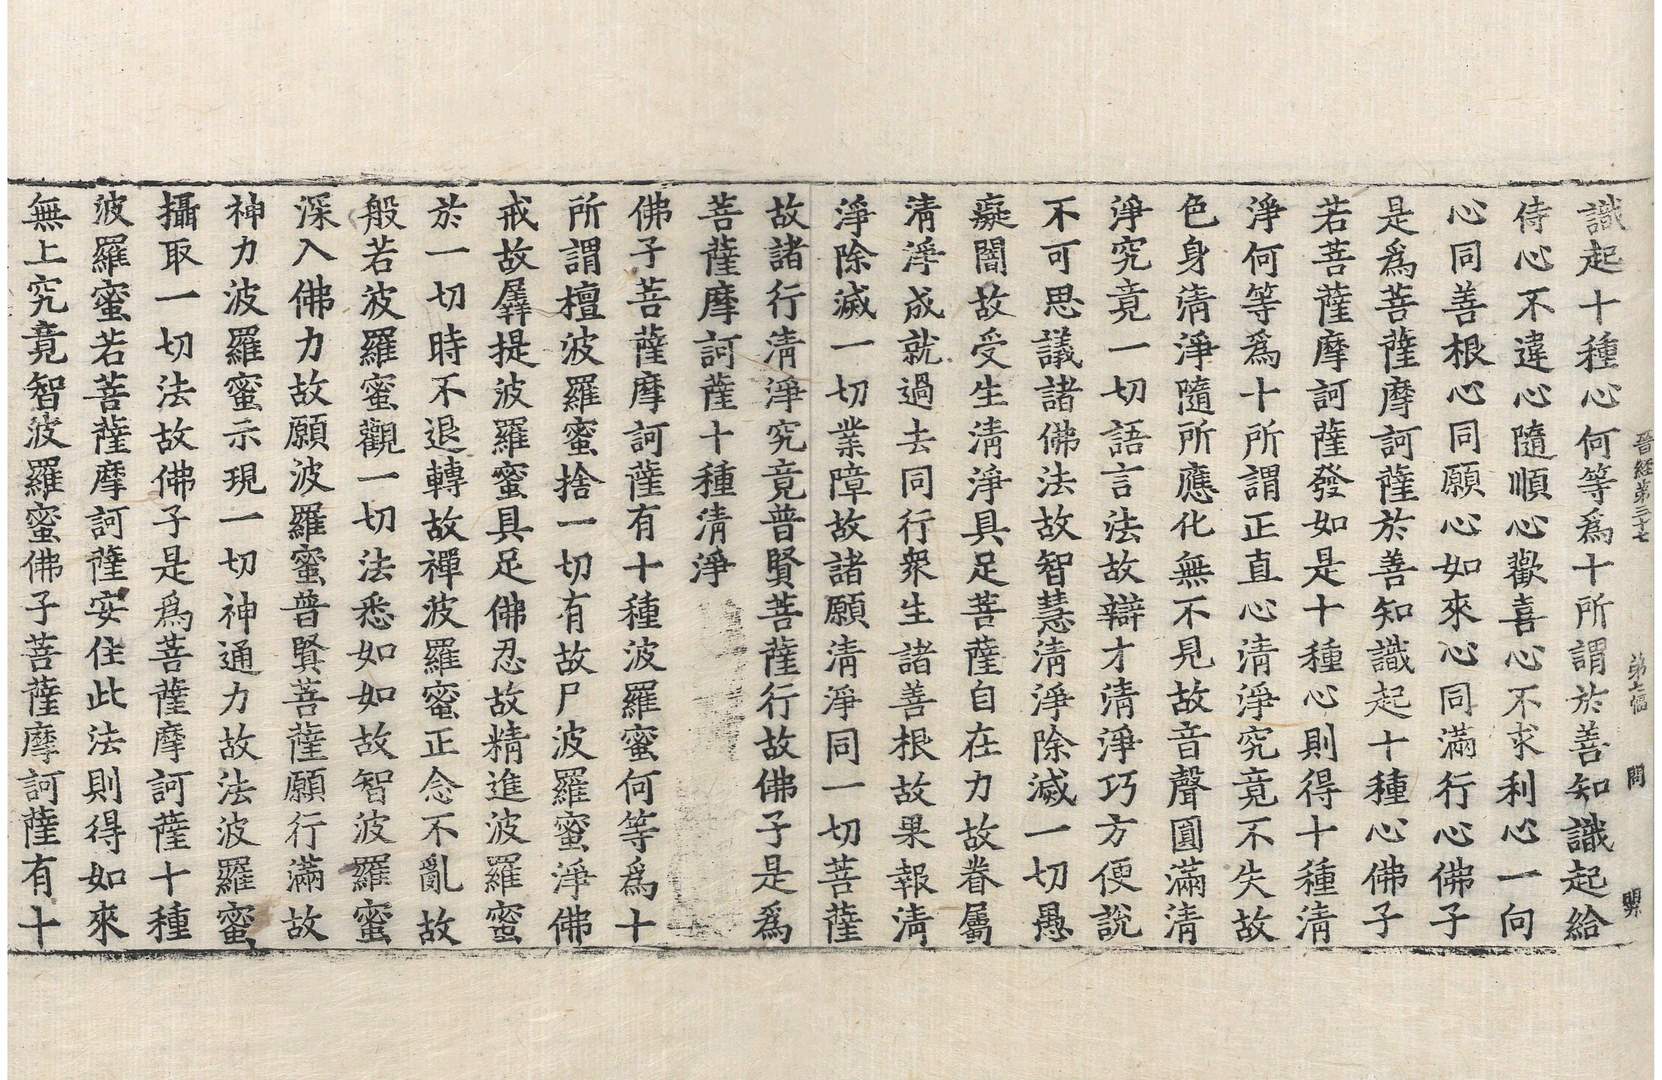 晉經第三十七 第七幅 問 興
識起十種心何等爲十所謂於善知識起給
侍心不違心隨順心歡喜心不求利心一向
心同善根心同願心如來心同滿行心佛子
是爲菩薩摩訶薩於善知識起十種心佛子
若菩薩摩訶薩發如是十種心則得十種清
淨何等爲十所謂正直心清淨究竟不失故
色身清淨隨所應化無不見故音聲圓滿清
淨究竟一切語言法故辯才清淨巧方便說
不可思議諸佛法故智慧清淨除滅一切愚
癡闇故受生清淨具足菩薩自在力故眷屬
清淨成就過去同行衆生諸善根故果報清
淨除滅一切業障故諸願清淨同一切菩薩
故諸行清淨究竟普賢菩薩行故佛子是爲
菩薩摩訶薩十種清淨
佛子菩薩摩訶薩有十種波羅蜜何等爲十
所謂檀波羅蜜捨一切有故尸波羅蜜淨佛
戒故羼提波羅蜜具足佛忍故精進波羅蜜
於一切時不退轉故禪波羅蜜正念不亂故
般若波羅蜜觀一切法悉如如故智波羅蜜
深入佛力故願波羅蜜普賢菩薩願行滿故
神力波羅蜜示現一切神通力故法波羅蜜
攝取一切法故佛子是爲菩薩摩訶薩十種
波羅蜜若菩薩摩訶薩安住此法則得如來
無上究竟智波羅蜜佛子菩薩摩訶薩有十